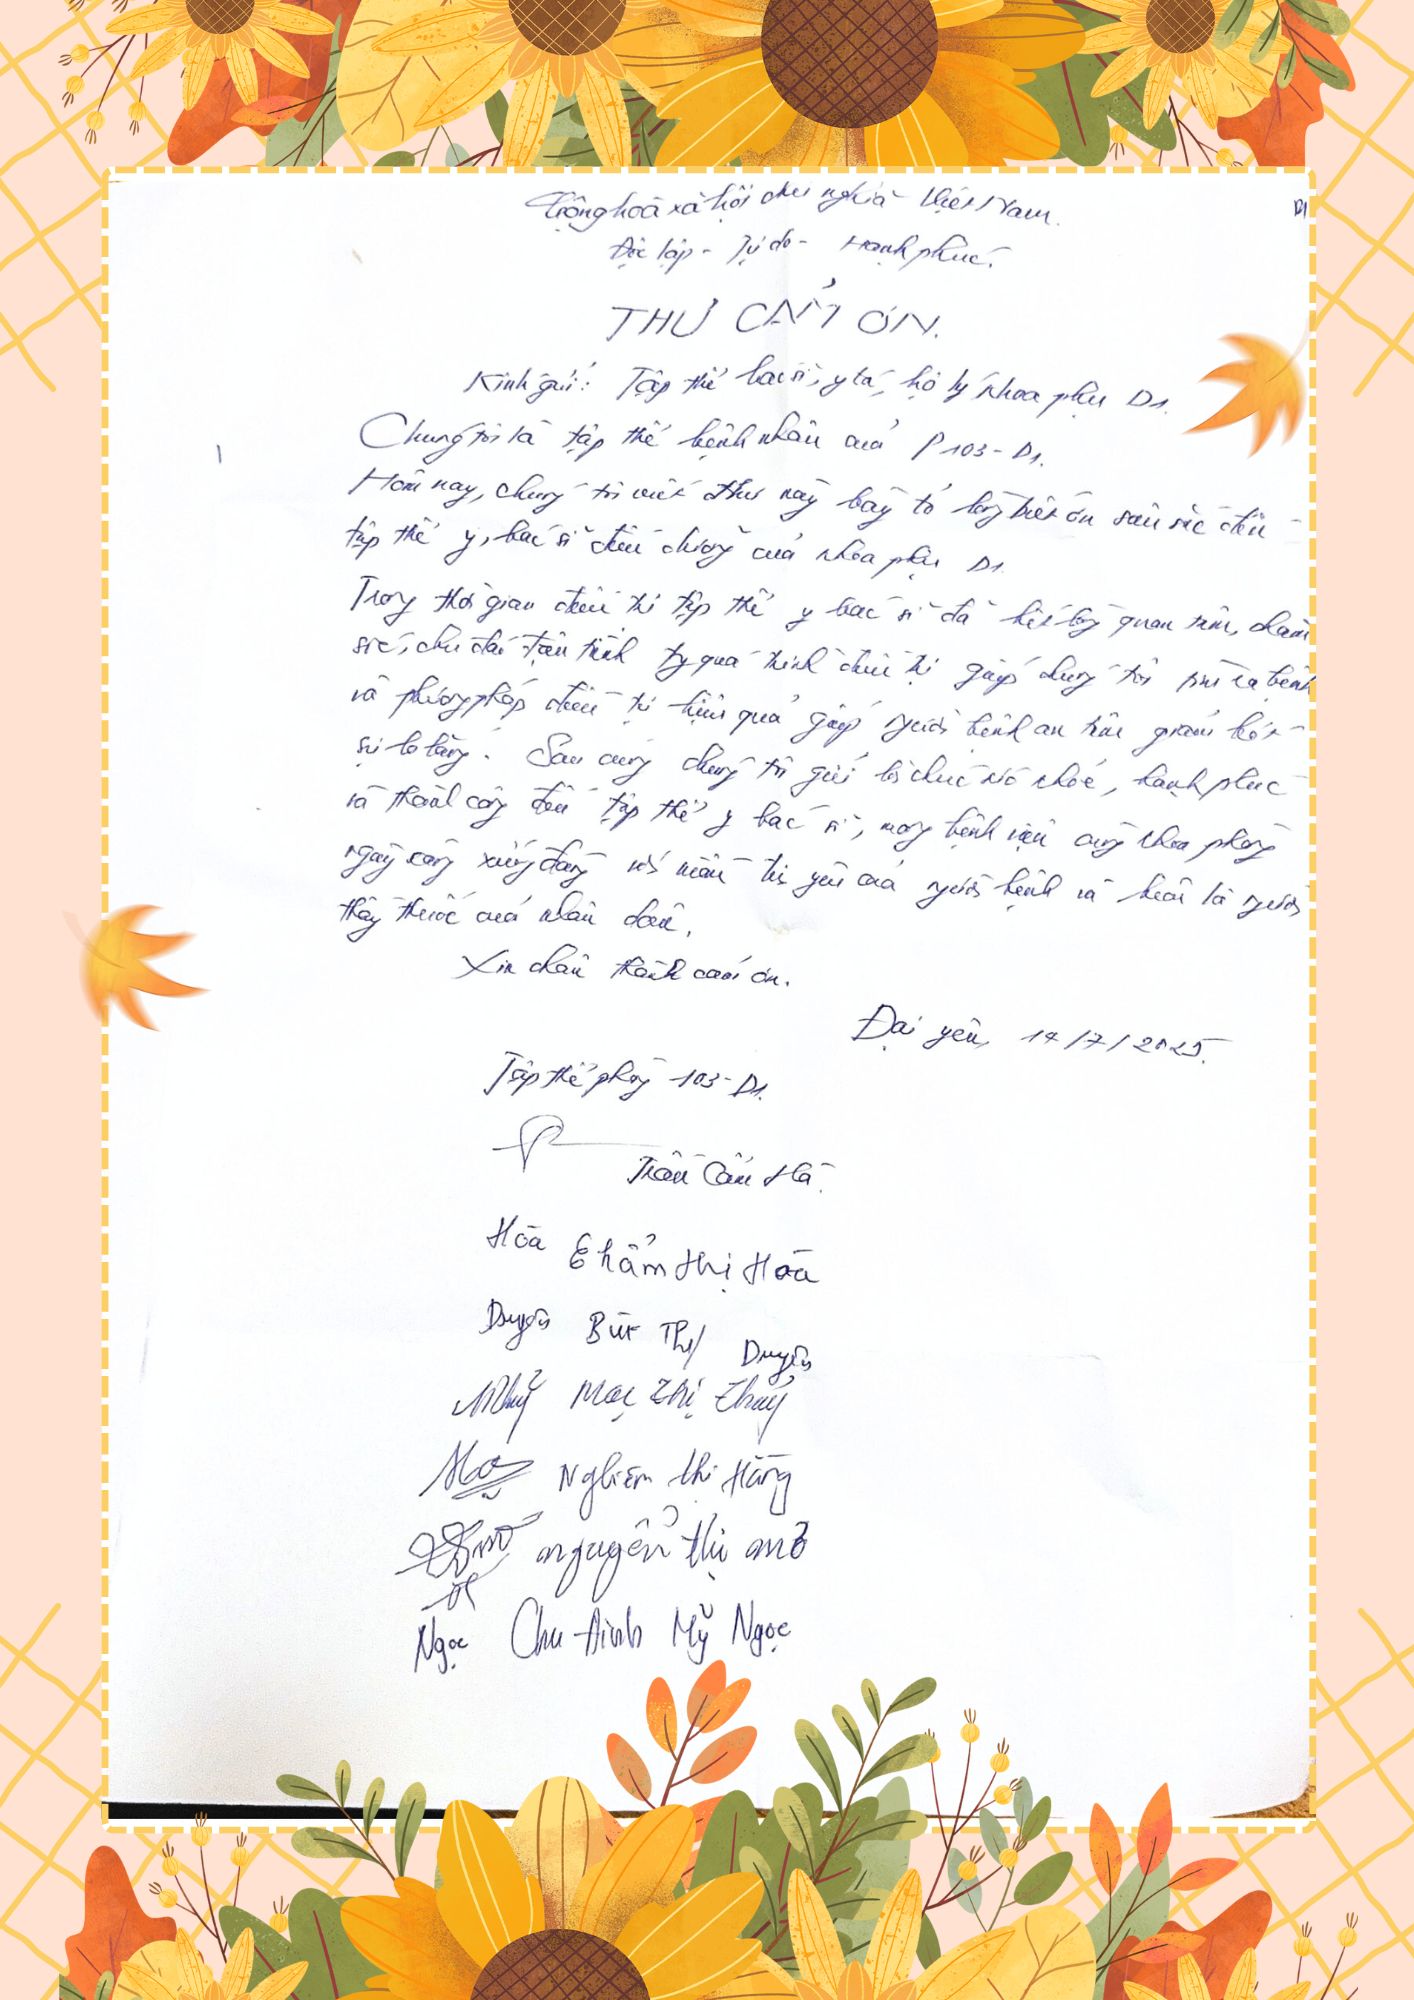 Cộng hoà xã hội chủ nghĩa Việt Nam.
D1
Độc lập - Tự do - Hạnh phúc.
THƯ CẢM ƠN.
Kính gửi: Tập thể bác sĩ, y tá, hộ lý khoa phụ D1.
Chúng tôi là tập thể bệnh nhân của P103-D1.
Hôm nay, chúng tôi viết thư này bày tỏ lòng biết ơn sâu sắc đến
tập thể y, bác sĩ điều dưỡng của khoa phụ D1
Trong thời gian điều trị tập thể y bác sĩ đã hết lòng quan tâm, chăm
sóc, chu đáo tận tình quá trình điều trị giúp chúng tôi tìm ra bệnh
và phương pháp điều trị hiệu quả giúp người bệnh an tâm giảm bớt
sự lo lắng. Sau cùng chúng tôi gửi lời chúc sức khoẻ, hạnh phúc
và thành công đến tập thể y bác sĩ, mong bệnh viện cùng khoa phòng
ngày càng xứng đáng với niềm tin yêu của người bệnh và luôn là người
thầy thuốc của nhân dân.
Xin chân thành cảm ơn.
Đại yên, 14/7/2025.
Tập thể phòng 103-D1.
Trần Cẩm Hà.
Hòa Khẩm thị Hòa
Duyên Bùi Thị Duyên
Thuỷ Mạc Thị Thuỷ
Nghiêm thi Hằng
nguyễn thị mơ
Ngọc Chu Đinh Mỹ Ngọc